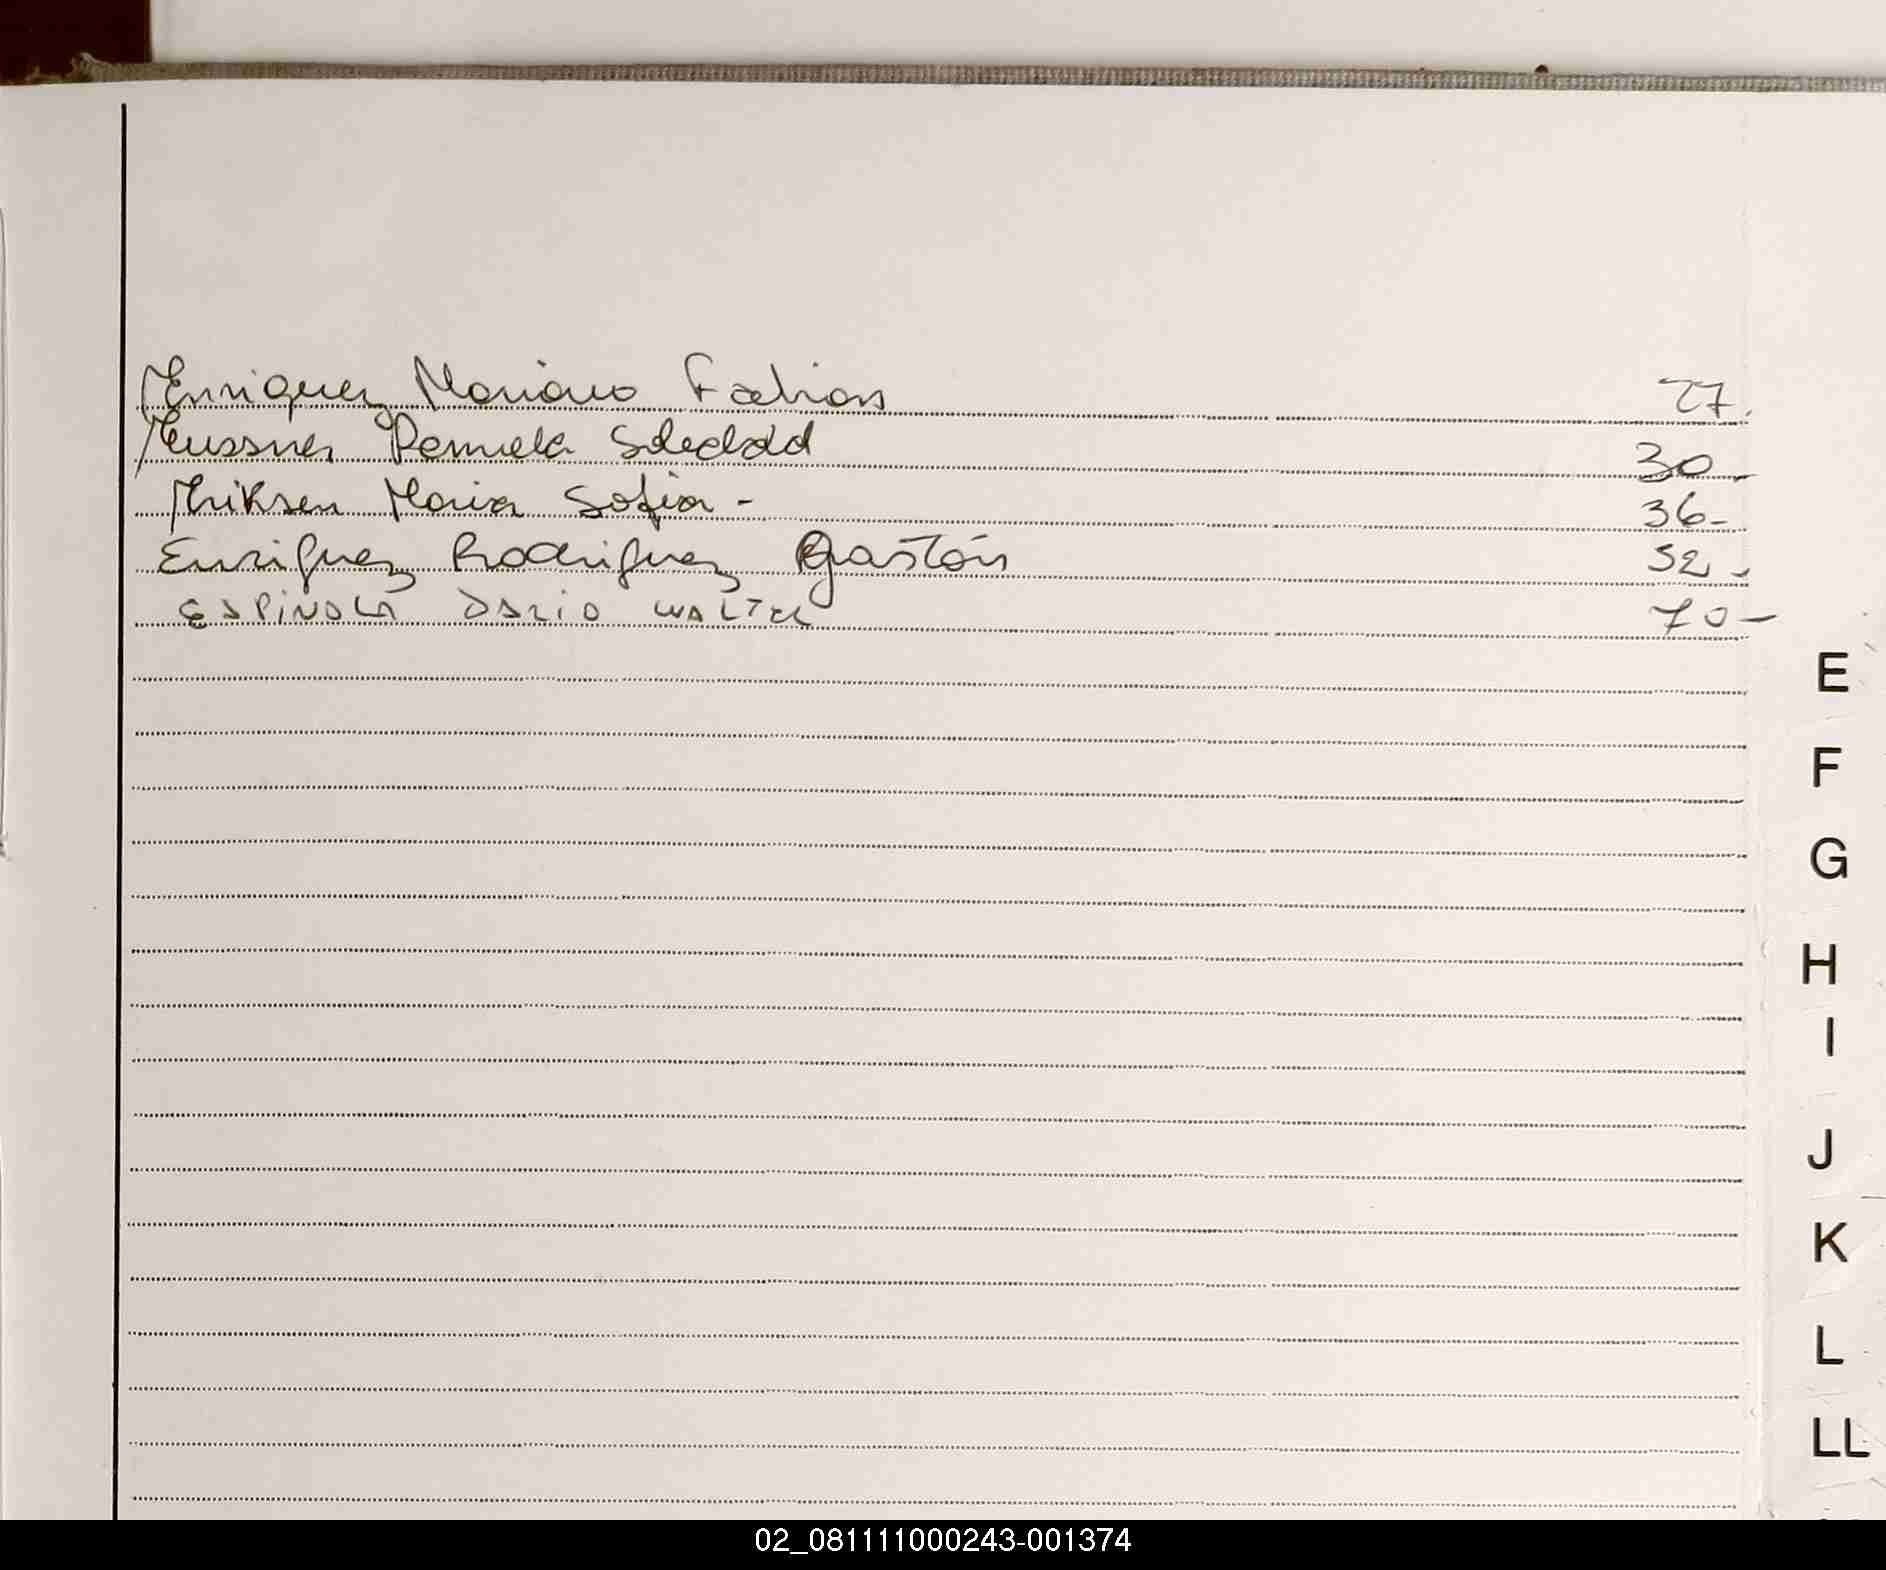 Enriquez Mariano Fabian 27.
Eussner Pamela Soledad 30_
Eriksen Maria Sofia - 36-
Enriquez Rodriguez Gastón 52-
ESPINOLA DARIO WALTER 70-
E
F
G
H
I
J
K
L
LL
02_081111000243-001374